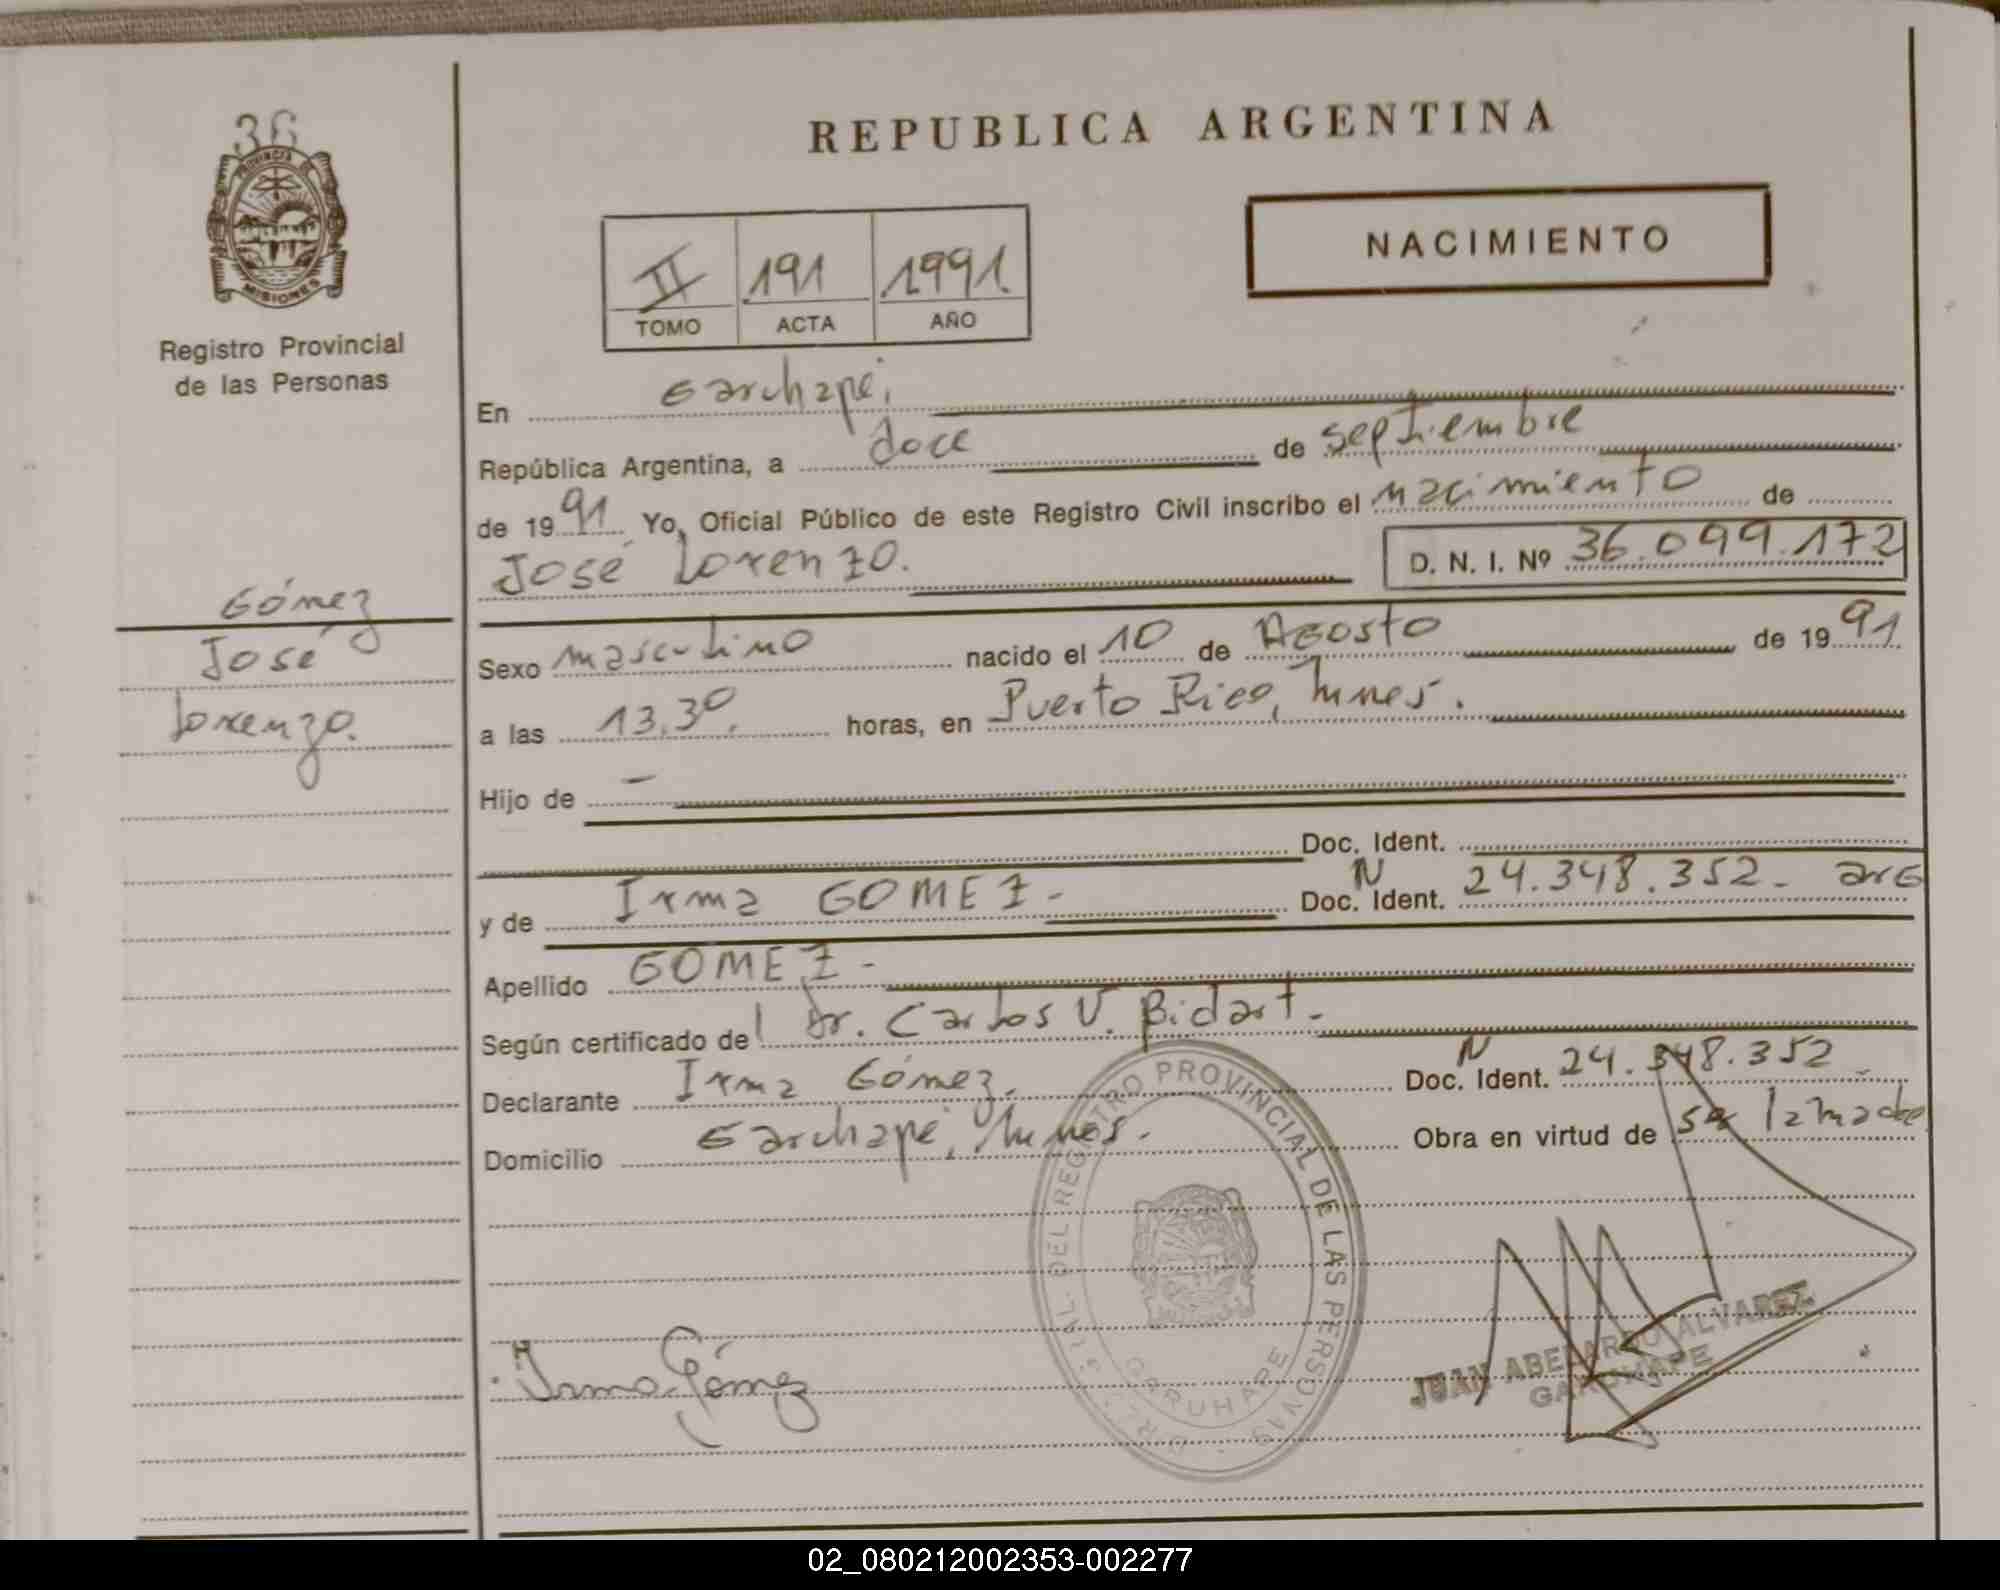 REPUBLICA ARGENTINA
36
PROVINCIA DE
MISIONES
Registro Provincial
de las Personas
NACIMIENTO
II 191 1991
TOMO ACTA AÑO
En Garuhapé,
República Argentina, a doce de septiembre
de 1991 Yo, Oficial Público de este Registro Civil inscribo el nacimiento de
José Lorenzo. D. N. I. Nº 36.099.172
Gómez
José
Lorenzo.
Sexo masculino nacido el 10 de Agosto de 1991
a las 13.30. horas, en Puerto Rico, Mnes.
Hijo de —
Doc. Ident.
y de Irma GOMEZ - Doc. N Ident. 24.348.352 - arg
Apellido GOMEZ -
Según certificado del Dr. Carlos V. Bidart -
Declarante Irma Gómez. Doc. N Ident. 24.348.352
Domicilio Garuhapé, Mnes. Obra en virtud de ser la madre
DEL REGISTRO PROVINCIAL DE LAS PERSONAS
GARUHAPE
Irma Gómez
JUAN ABELARDO ALVAREZ
GARUHAPE
02_080212002353-002277